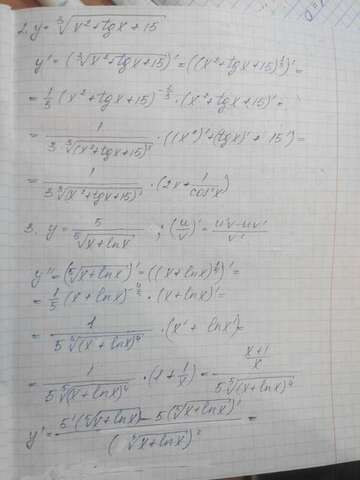 2. y = ∛(x² + tgx + 15)
y' = (∛(x² + tgx + 15))' = ((x² + tgx + 15)^(1/3))' =
= 1/3 (x² + tgx + 15)^(-2/3) · (x² + tgx + 15)' =
= 1/(3·∛(x² + tgx + 15)²) · ((x²)' + (tgx)' + 15') =
= 1/(3·∛(x² + tgx + 15)²) · (2x + 1/cos²x)
3. y = 5/⁵√(x + lnx) ; (u/v)' = (u'v - uv')/v²
y' = (⁵√(x + lnx))' = ((x + lnx)^(1/5))' =
= 1/5 (x + lnx)^(-4/5) · (x + lnx)' =
= 1/(5 ⁵√(x + lnx)⁴) · (x' + lnx') =
= 1/(5 ⁵√(x + lnx)⁴) · (1 + 1/x) = ((x+1)/x)/(5 ⁵√(x + lnx)⁴)
y' = (5'(⁵√(x + lnx)) - 5(⁵√(x + lnx))')/(⁵√(x + lnx))² =